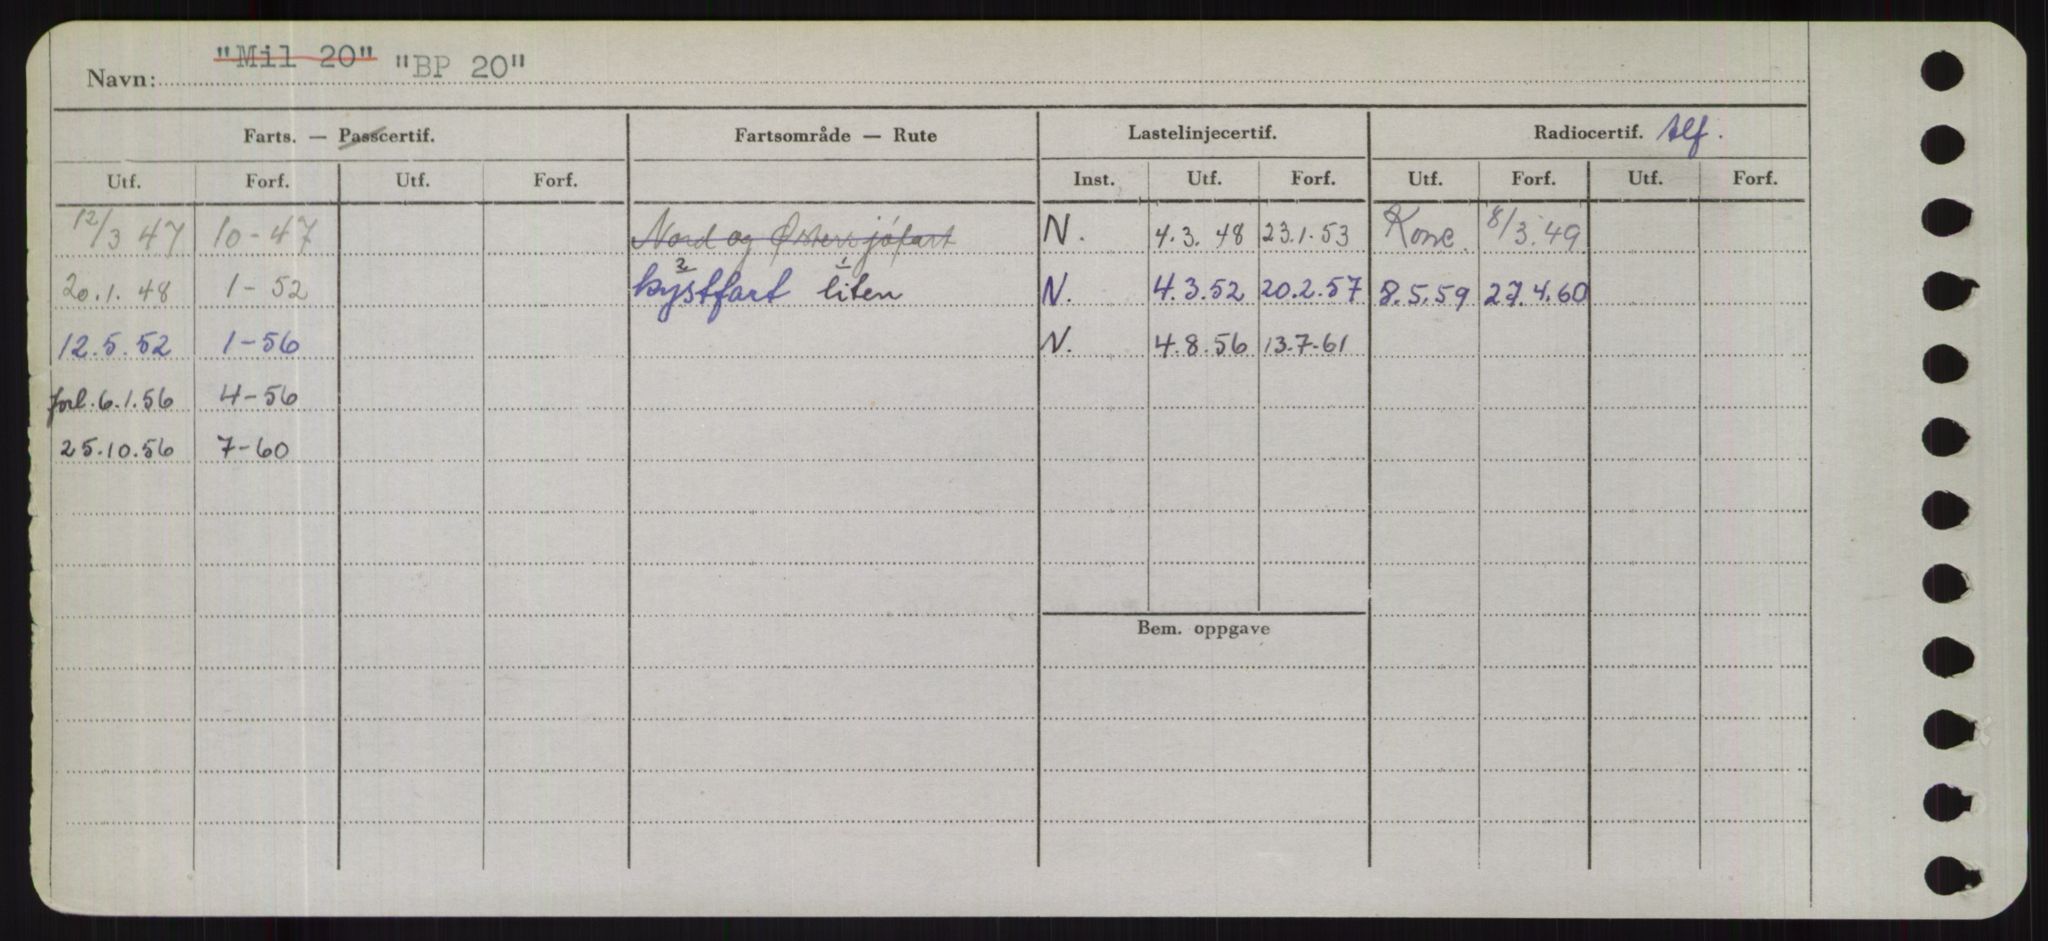 "Mil 20" "BP 20"
Navn:
Farts. — Passcertif. Fartsområde — Rute Lastelinjecertif. Radiocertif. tlf.
Utf. Forf. Utf. Forf. Inst. Utf. Forf. Utf. Forf. Utf. Forf.
12/3 47 10-47 Nord og Østersjøfart N. 4.3.48 23.1.53 8/3.49
20.1.48 1-52 kystfart 2 liten 1 N. 4.3.52 20.2.57 8.5.59 27.4.60
12.5.52 1-56 N. 4.8.56 13.7-61
forl. 6.1.56 4-56
25.10.56 7-60
Bem. oppgave